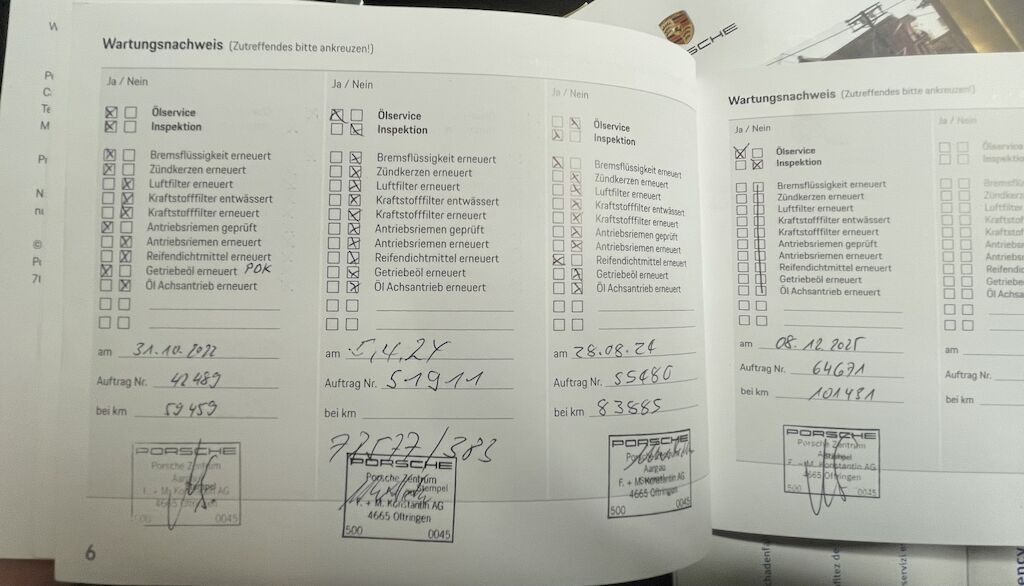 PORSCHE
Wartungsnachweis (Zutreffendes bitte ankreuzen!)
Ja / Nein
Ölservice
Inspektion
Bremsflüssigkeit erneuert
Zündkerzen erneuert
Luftfilter erneuert
Kraftstofffilter entwässert
Kraftstofffilter erneuert
Antriebsriemen geprüft
Antriebsriemen erneuert
Reifendichtmittel erneuert
Getriebeöl erneuert PDK
Öl Achsantrieb erneuert
am 31.10.2022
Auftrag Nr. 42489
bei km 59459
PORSCHE
Porsche Zentrum
Aargau
F. + M. Konstantin AG
4665 Oftringen
500 0045
6
Ja / Nein
Ölservice
Inspektion
Bremsflüssigkeit erneuert
Zündkerzen erneuert
Luftfilter erneuert
Kraftstofffilter entwässert
Kraftstofffilter erneuert
Antriebsriemen geprüft
Antriebsriemen erneuert
Reifendichtmittel erneuert
Getriebeöl erneuert
Öl Achsantrieb erneuert
am 5.4.24
Auftrag Nr. 51911
bei km
77577/383
PORSCHE
Porsche Zentrum
Stempel
F. + M. Konstantin AG
4665 Oftringen
500 0045
Ja / Nein
Ölservice
Inspektion
Bremsflüssigkeit erneuert
Zündkerzen erneuert
Luftfilter erneuert
Kraftstofffilter entwässert
Kraftstofffilter erneuert
Antriebsriemen geprüft
Antriebsriemen erneuert
Reifendichtmittel erneuert
Getriebeöl erneuert
Öl Achsantrieb erneuert
am 28.08.24
Auftrag Nr. 55480
bei km 83885
PORSCHE
Aargau
F. + M. Konstantin AG
4665 Oftringen
500 0045
Wartungsnachweis (Zutreffendes bitte ankreuzen!)
Ja / Nein
Ölservice
Inspektion
Bremsflüssigkeit erneuert
Zündkerzen erneuert
Luftfilter erneuert
Kraftstofffilter entwässert
Kraftstofffilter erneuert
Antriebsriemen geprüft
Antriebsriemen erneuert
Reifendichtmittel erneuert
Getriebeöl erneuert
Öl Achsantrieb erneuert
am 08.12.2025
Auftrag Nr. 64671
bei km 101431
PORSCHE
Porsche Zentrum
Stempel
F. + M. Konstantin AG
4665 Oftringen
500 0045
Ja / Nein
Ölservice
am
Auftrag Nr.
bei km